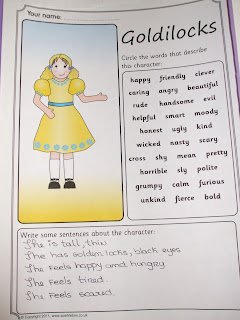 Your name:
Goldilocks
Circle the words that describe
this character:
happy friendly clever
caring angry beautiful
rude handsome evil
helpful smart moody
honest ugly kind
wicked nasty scary
cross shy mean pretty
horrible sly polite
grumpy calm furious
unkind fierce bold
Write some sentences about the character:
She is tall, thin
She has golden locks, black eyes
She feels happy and hungry
She feels tired.
She feels scared.
© Copyright 2011, www.sparklebox.co.uk